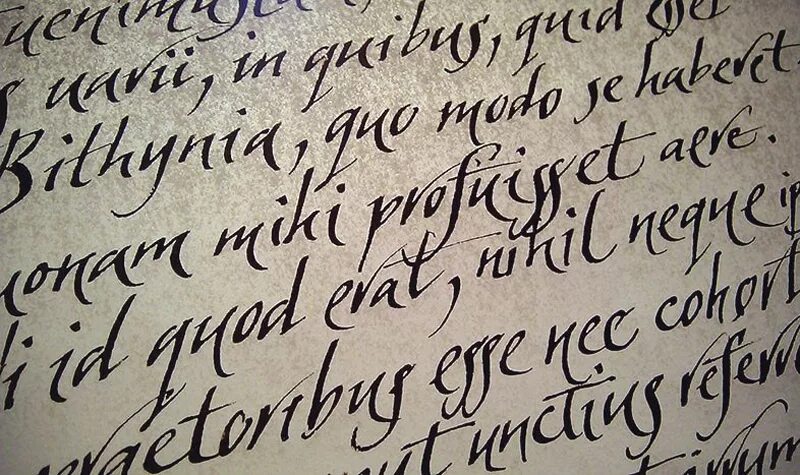 uenimus,
s uarii, in quibus, quid esset
Bithynia, quo modo se haberet
uonam mihi profuisset aere.
di id quod erat, nihil neque ip
praetoribus esse nec cohort
put unctius referr